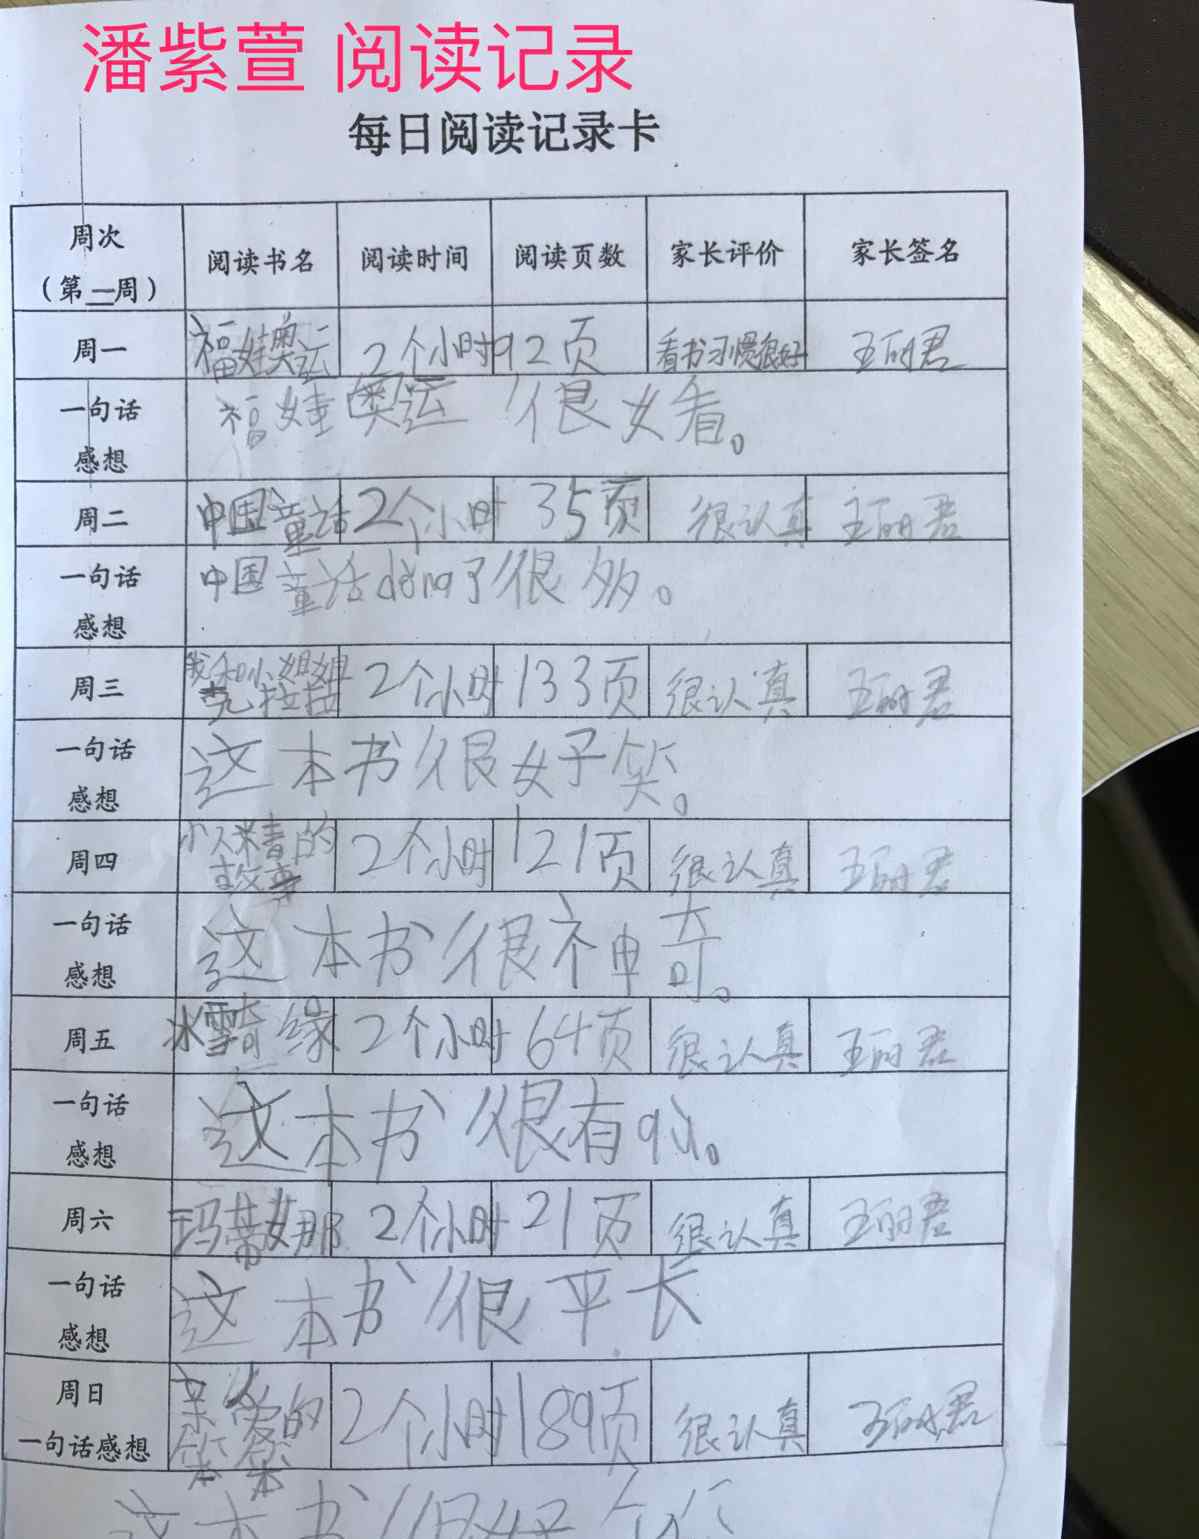 潘紫萱 阅读记录
每日阅读记录卡
周次
（第一周） 阅读书名 阅读时间 阅读页数 家长评价 家长签名
周一 福娃奥运 2个小时 92页 看书习惯很好 王丽君
一句话感想 福娃奥运很好看。
周二 中国童话 2个小时 35页 很认真 王丽君
一句话感想 中国童话dǒng了很多。
周三 我和小姐姐克拉拉 2个小时 133页 很认真 王丽君
一句话感想 这本书很好笑。
周四 小人精的故事 2个小时 121页 很认真 王丽君
一句话感想 这本书很神奇。
周五 冰雪奇缘 2个小时 64页 很认真 王丽君
一句话感想 这本书很有qù。
周六 玛蒂娜 2个小时 21页 很认真 王丽君
一句话感想 这本书很平长
周日
一句话感想 亲爱的笨笨 2个小时 189页 很认真 王丽君
这本书很好